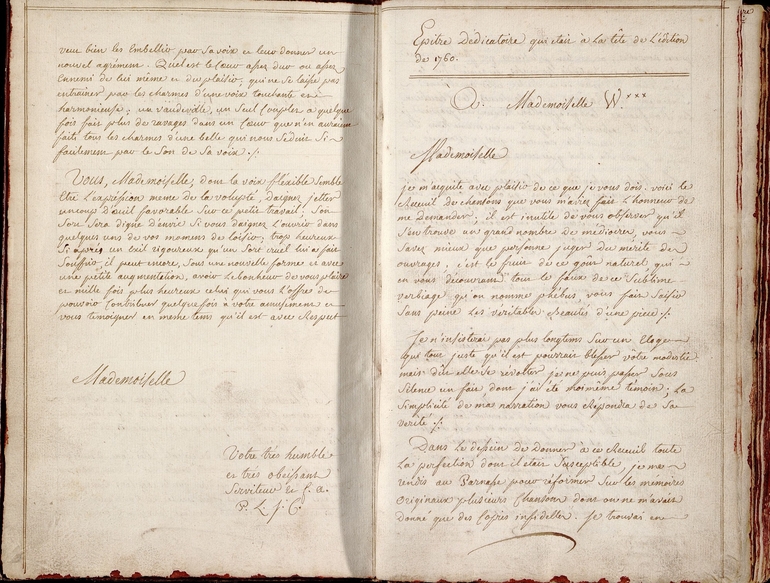 veut bien les Embellir par sa voix et leur donner un
nouvel agrément. Quel est le Cœur assez dur ou assez
Ennemi de lui même et du plaisir, qui ne se laisse pas
entrainer par les charmes d'une voix touchante et
harmonieuse; un vaudeville, un seul Couplet a quelque
fois fait plus de ravages dans un Cœur que n'en auroient
faits tous les charmes d'une belle qui nous séduit si
facilement par le Son de Sa voix ./.
Vous, Mademoiselle, dont la voix flexible semble
Etre l'expression meme de la volupté, daignez jetter
un coup d'œuil favorable sur ce petit travail; Son
Sort Sera digne d'envie si vous daignez l'ouvrir dans
quelques uns de vos momens de loisir; trop heureux
Si après un Exil rigoureux qu'un Sort cruel lui a fait
Souffrir, il peut encore, sous une nouvelle forme et avec
une petite augmentation, avoir le bonheur de vous plaire
et mille fois plus heureux celui qui vous l'offre de
pouvoir Contribuer quelque fois à vôtre amusement et
vous témoigner en meme tems qu'il est avec Respect
Mademoiselle
Votre très humble
et très obéissant
Serviteur
P. L. J. C.
Epitre Dédicatoire qui etait à la tête de l'édition
de 1760.
A. Mademoiselle W.xxx
Mademoiselle
je m'aquite avec plaisir de ce que je vous dois. voici le
Recueil de chansons que vous m'aviez fait l'honneur de
me Demander; il est inutile de vous observer qu'il
s'en trouve un grand nombre de médiocres, vous
savez mieux que personne juger du mérite des
ouvrages, c'est le fruit de ce goût naturel qui
en vous découvrant tout le faux de ce Sublime
verbiage qu'on nomme phébus, vous fait saisir
sans peine les veritables Beautés d'une piece ./.
Je n'insisterai pas plus longtems sur un Eloge
qui tout juste qu'il est pourrait blesser vôtre modestie
mais dût elle se révolter je ne puis passer sous
silence un fait dont j'ai été moi même témoin; la
simplicité de ma narration vous Répondra de sa
verité ./.
Dans le dessein de donner à ce Recueil toute
la perfection dont il était susceptible, je me
rendis au Parnasse pour réformer sur les memoires
originaux plusieurs Chansons dont on ne m'avait
donné que des Copies infidelles. Je trouvai en